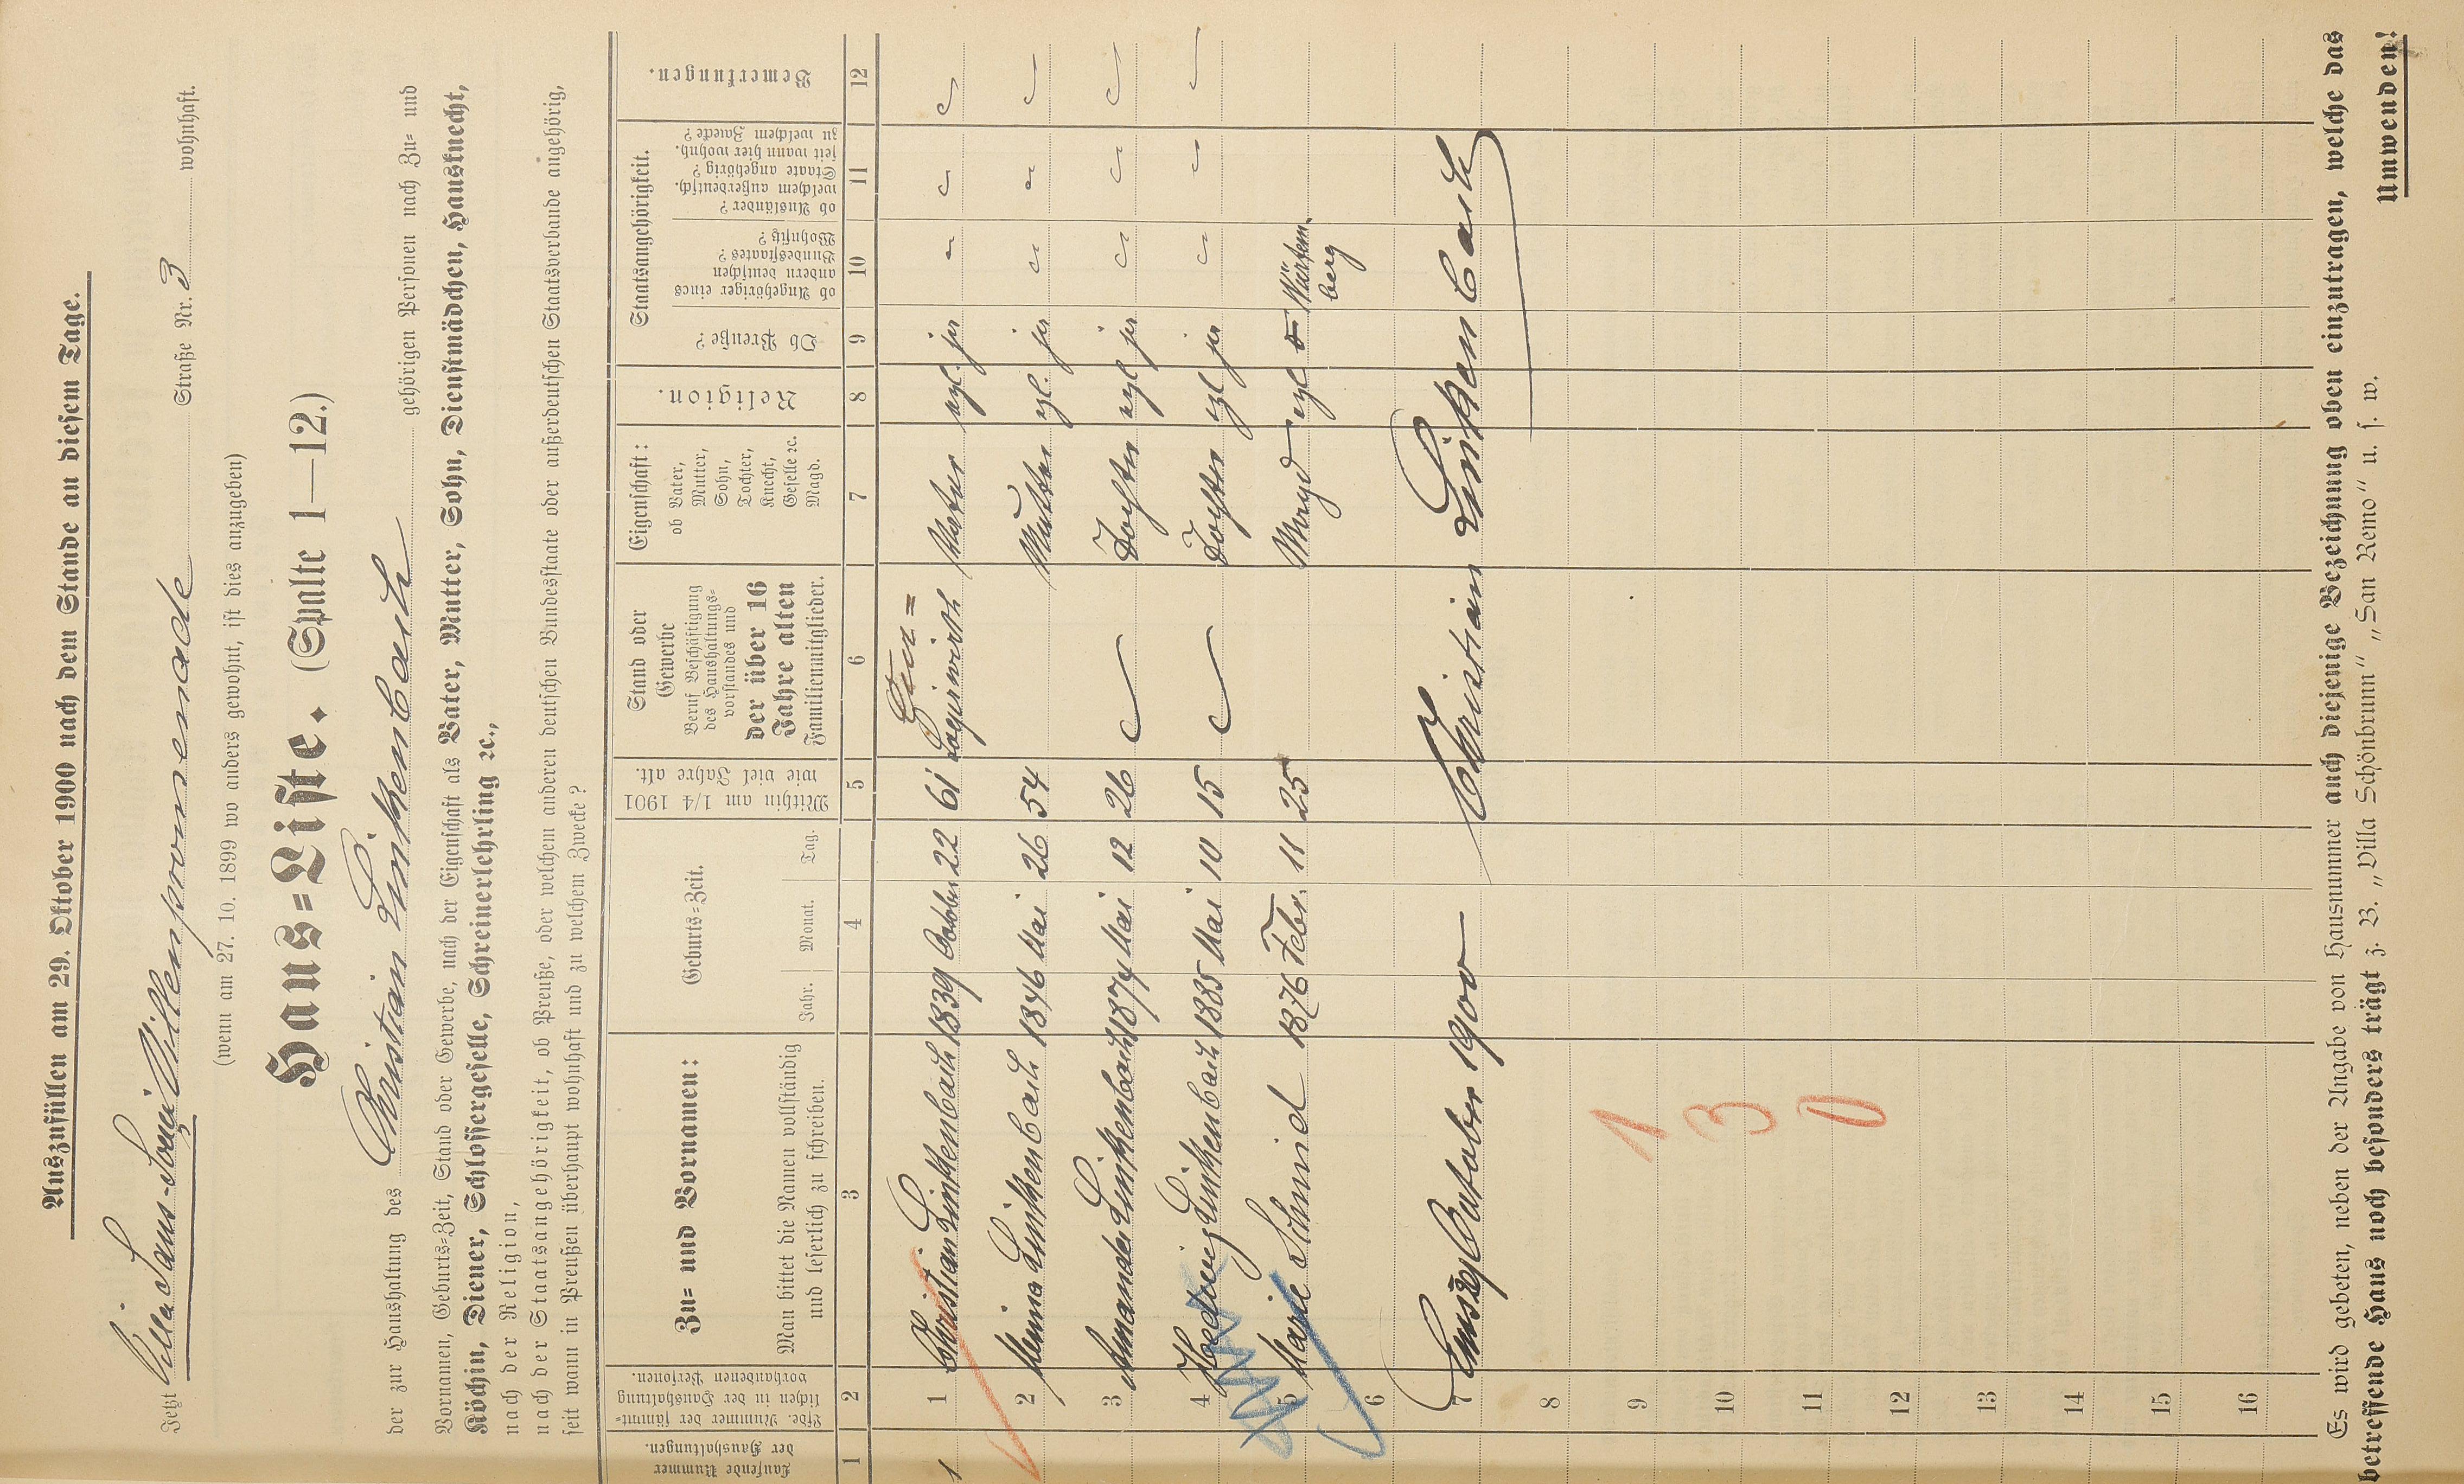 Auszufüllen am 29. Oktober 1900 nach dem Stande an diesem Tage.
Jetzt Villa Sans-Souci Villenpromenade Straße Nr. 3 wohnhaft.
(wenn am 27. 10. 1899 wo anders gewohnt, ist dies anzugeben)
Haus=Liste. (Spalte 1—12.)
der zur Haushaltung des Christian Linkenbach gehörigen Personen nach Zu= und
Vornamen, Geburts=Zeit, Stand oder Gewerbe, nach der Eigenschaft als Vater, Mutter, Sohn, Dienstmädchen, Hausknecht,
Köchin, Diener, Schlossergeselle, Schreinerlehrling ꝛc.,
nach der Religion,
nach der Staatsangehörigkeit, ob Preuße, oder welchem anderen deutschen Bundesstaate oder außerdeutschen Staatsverbande angehörig,
seit wann in Preußen überhaupt wohnhaft und zu welchem Zwecke?
Laufende Nummer der Haushaltungen.
Lfde. Nummer der sämmt=lichen in der Haushaltung vorhandenen Personen.
Zu= und Vornamen:
Man bittet die Namen vollständig und leserlich zu schreiben.
Geburts=Zeit.
Jahr. Monat. Tag.
Mithin am 1/4 1901 wie viel Jahre alt.
Stand oder Gewerbe
Beruf Beschäftigung des Haushaltungs=vorstandes und
der über 16 Jahre alten Familienmitglieder.
Eigenschaft:
ob Vater, Mutter, Sohn, Tochter, Knecht, Geselle ꝛc. Magd.
Religion.
Staatsangehörigkeit.
Ob Preuße?
ob Angehöriger eines andern deutschen Bundesstaates? Wohnsitz?
ob Ausländer? welchem außerdeutsch. Staate angehörig? seit wann hier wohnh. zu welchem Zwecke?
Bemerkungen.
1 2 3 4 5 6 7 8 9 10 11 12
1 1 Christian Linkenbach 1839 October 22 61 Logirwirth Vater evgl. ja
2 Minna Linkenbach 1846 Mai 26 54 Mutter evgl. ja
3 Amanda Linkenbach 1874 Mai 12 26 Tochter evgl ja
4 Hedwig Linkenbach 1885 Mai 10 15 Tochter evgl ja
5 Marie Schmid 1876 Febr. 11 25 Magd evgl Würtemberg
6
7 Ems 29 October 1900 Christian Linkenbach
8
9 1
10 3
11 0
12
13
14
15
16
Es wird gebeten, neben der Angabe von Hausnummer auch diejenige Bezeichnung oben einzutragen, welche das
betreffende Haus noch besonders trägt z. B. „Villa Schönbrunn" „San Remo" u. s. w.
Umwenden!